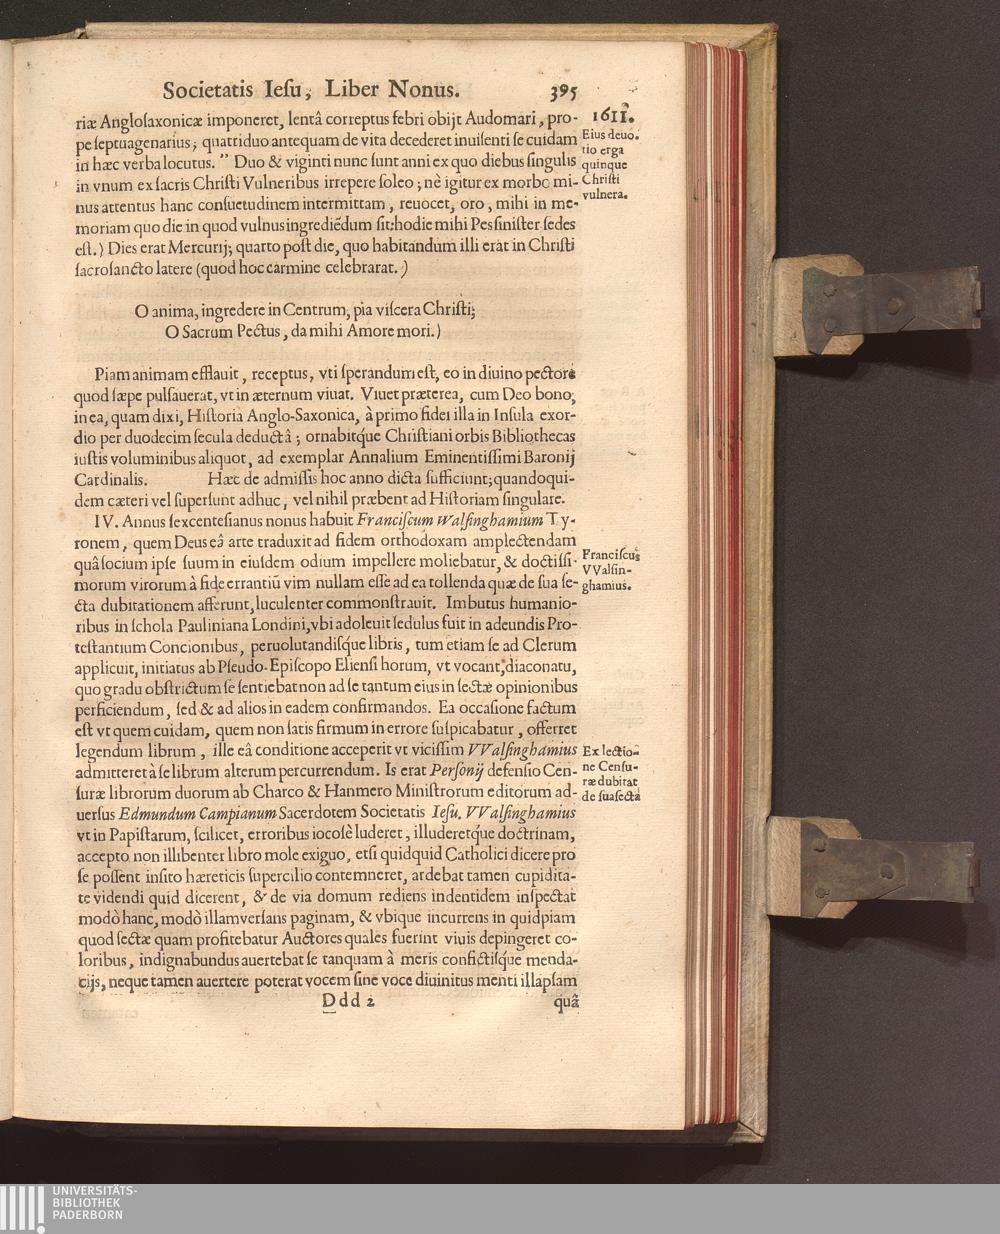 Societatis Iesu, Liber Nonus. 395
1611.
riæ Anglosaxonicæ imponeret, lentâ correptus febri obijt Audomari, pro-
pe septuagenarius; quatriduo antequam de vita decederet inuisenti se cuidam
in hæc verba locutus. " Duo & viginti nunc sunt anni ex quo diebus singulis
in vnum ex sacris Christi Vulneribus irrepere soleo; nè igitur ex morbo mi-
nus attentus hanc consuetudinem intermittam, reuocet, oro, mihi in me-
moriam quo die in quod vulnus ingrediẽdum sit: hodie mihi Pes sinister sedes
est.) Dies erat Mercurij; quarto post die, quo habitandum illi erat in Christi
sacrosancto latere (quod hoc carmine celebrarat.)
Eius deuo-
tio erga
quinque
Christi
vulnera.
O anima, ingredere in Centrum, pia viscera Christi;
O Sacrum Pectus, da mihi Amore mori.)
Piam animam efflauit, receptus, vti sperandum est, eo in diuino pectore
quod sæpe pulsauerat, vt in æternum viuat. Viuet præterea, cum Deo bono,
in ea, quam dixi, Historia Anglo-Saxonica, à primo fidei illa in Insula exor-
dio per duodecim secula deductâ; ornabitq́ue Christiani orbis Bibliothecas
iustis voluminibus aliquot, ad exemplar Annalium Eminentissimi Baronij
Cardinalis. Hæc de admissis hoc anno dicta sufficiunt; quandoqui-
dem cæteri vel supersunt adhuc, vel nihil præbent ad Historiam singulare.
IV. Annus sexcentesianus nonus habuit Franciscum Walsinghamium Ty-
ronem, quem Deus eâ arte traduxit ad fidem orthodoxam amplectendam
quâ socium ipse suum in eiusdem odium impellere moliebatur, & doctissi-
morum virorum à fide errantiũ vim nullam esse ad ea tollenda quæ de sua se-
cta dubitationem afferunt, luculenter commonstrauit. Imbutus humanio-
ribus in schola Pauliniana Londini, vbi adoleuit sedulus fuit in adeundis Pro-
testantium Concionibus, peruolutandisq́ue libris, tum etiam se ad Clerum
applicuit, initiatus ab Pseudo-Episcopo Eliensi horum, vt vocant, diaconatu,
quo gradu obstrictum se sentiebat non ad se tantum eius in sectæ opinionibus
perficiendum, sed & ad alios in eadem confirmandos. Ea occasione factum
est vt quem cuidam, quem non satis firmum in errore suspicabatur, offerret
legendum librum, ille eâ conditione acceperit vt vicissim VValsinghamius
admitteret à se librum alterum percurrendum. Is erat Personij defensio Cen-
suræ librorum duorum ab Charco & Hanmero Ministrorum editorum ad-
uersus Edmundum Campianum Sacerdotem Societatis Iesu. VValsinghamius
vt in Papistarum, scilicet, erroribus iocosè luderet, illuderetq́ue doctrinam,
accepto non illibenter libro mole exiguo, etsi quidquid Catholici dicere pro
se possent insito hæreticis supercilio contemneret, ardebat tamen cupidita-
te videndi quid dicerent, & de via domum rediens indentidem inspectat
modò hanc, modò illam versans paginam, & vbique incurrens in quidpiam
quod sectæ quam profitebatur Auctores quales fuerint viuis depingeret co-
loribus, indignabundus auertebat se tanquam à meris confictisq́ue menda-
cijs, neque tamen auertere poterat vocem sine voce diuinitus menti illapsam
Franciscus
VValsin-
ghamius.
Ex lectio-
ne Censu-
ræ dubitat
de sua sectâ
Ddd 2 quâ
UNIVERSITÄTS-
BIBLIOTHEK
PADERBORN